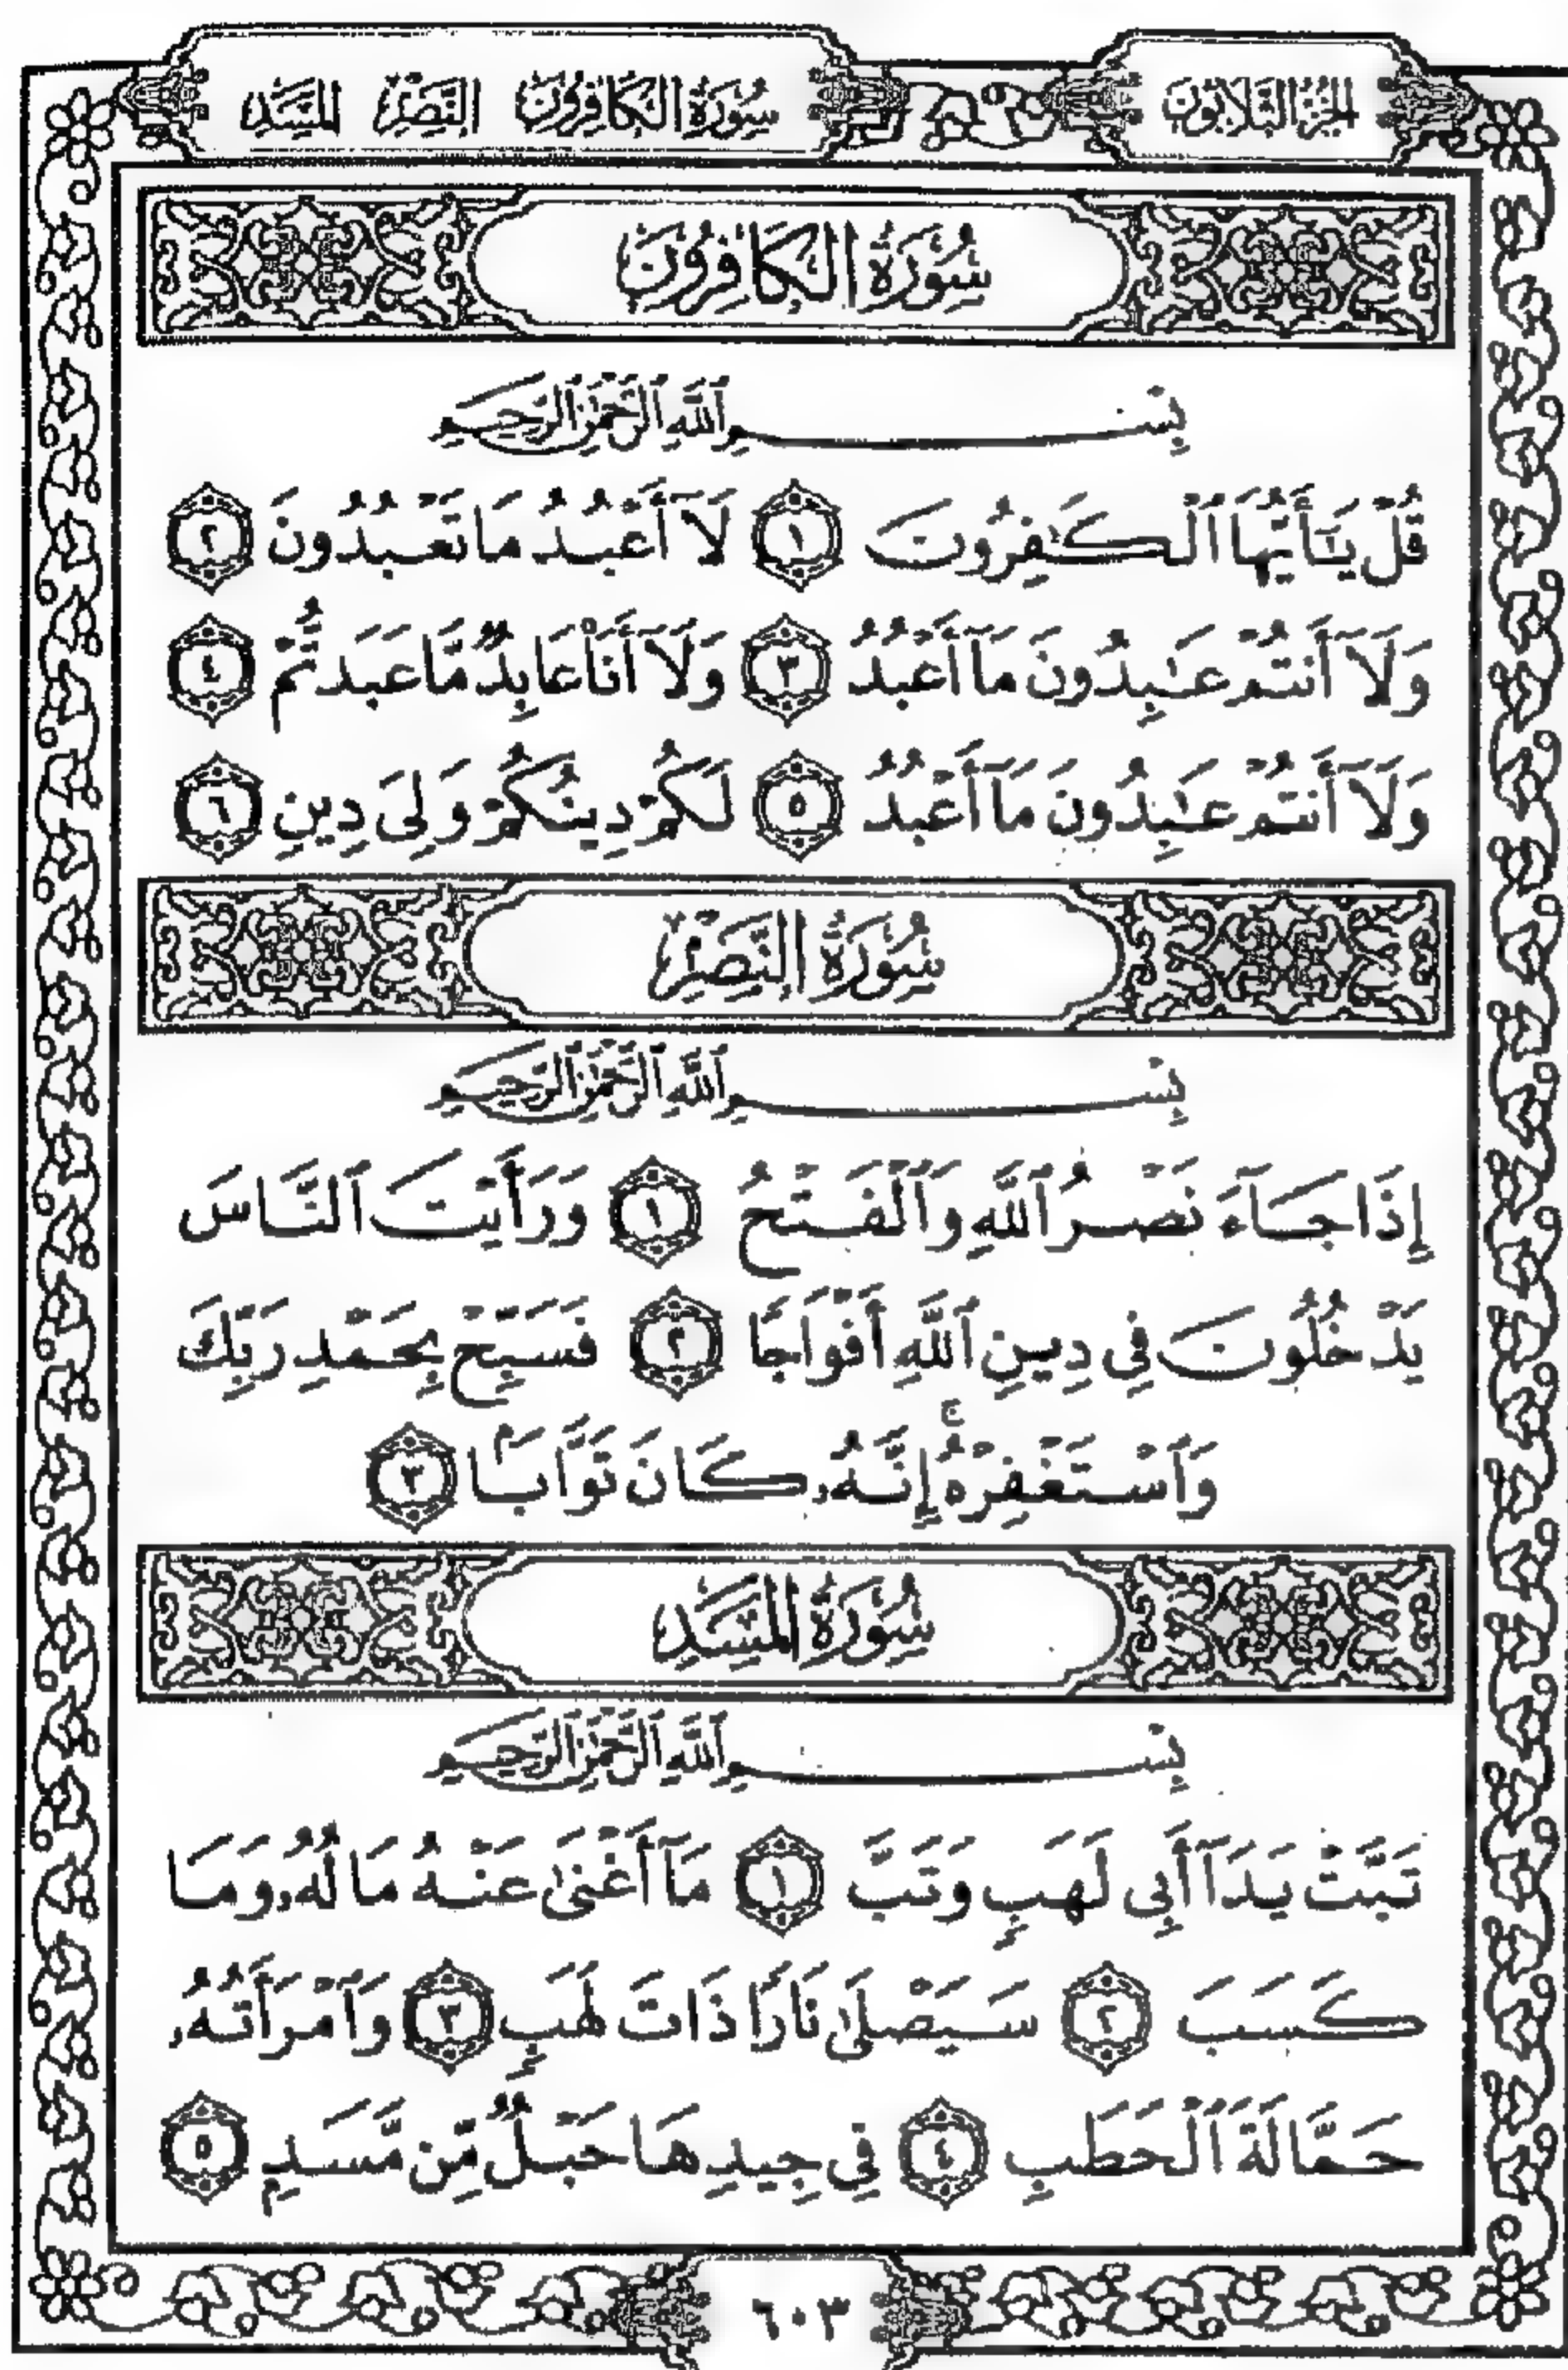 الجزء الثلاثون
سورة الكافرون النصر المسد
سُورَةُ الكَافِرُونَ
بِسْمِ ٱللَّهِ ٱلرَّحْمَٰنِ ٱلرَّحِيمِ
قُلْ يَٰٓأَيُّهَا ٱلْكَٰفِرُونَ ١ لَآ أَعْبُدُ مَا تَعْبُدُونَ ٢
وَلَآ أَنتُمْ عَٰبِدُونَ مَآ أَعْبُدُ ٣ وَلَآ أَنَا۠ عَابِدٌ مَّا عَبَدتُّمْ ٤
وَلَآ أَنتُمْ عَٰبِدُونَ مَآ أَعْبُدُ ٥ لَكُمْ دِينُكُمْ وَلِيَ دِينِ ٦
سُورَةُ النَّصْرِ
بِسْمِ ٱللَّهِ ٱلرَّحْمَٰنِ ٱلرَّحِيمِ
إِذَا جَآءَ نَصْرُ ٱللَّهِ وَٱلْفَتْحُ ١ وَرَأَيْتَ ٱلنَّاسَ
يَدْخُلُونَ فِى دِينِ ٱللَّهِ أَفْوَاجًا ٢ فَسَبِّحْ بِحَمْدِ رَبِّكَ
وَٱسْتَغْفِرْهُ ۚ إِنَّهُۥ كَانَ تَوَّابًۢا ٣
سُورَةُ المَسَدِ
بِسْمِ ٱللَّهِ ٱلرَّحْمَٰنِ ٱلرَّحِيمِ
تَبَّتْ يَدَآ أَبِى لَهَبٍ وَتَبَّ ١ مَآ أَغْنَىٰ عَنْهُ مَالُهُۥ وَمَا
كَسَبَ ٢ سَيَصْلَىٰ نَارًا ذَاتَ لَهَبٍ ٣ وَٱمْرَأَتُهُۥ
حَمَّالَةَ ٱلْحَطَبِ ٤ فِى جِيدِهَا حَبْلٌ مِّن مَّسَدٍۭ ٥
٦٠٣